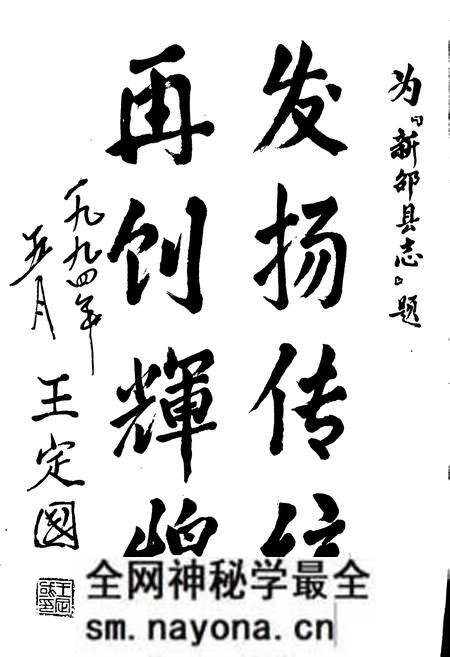 为『新邵县志』题
发扬传
再创輝
一九九四年
五月
王定國
全网神秘学最全
sm.nayona.cn